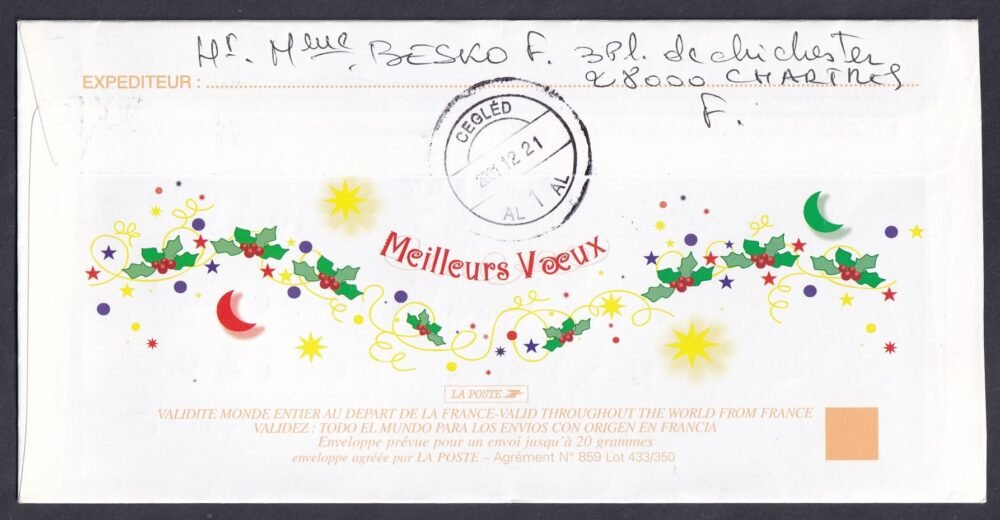 Mr. Mme. BESKO F. 3 Pl. de chichester
EXPEDITEUR :
28000 CHARTRES
F.
CEGLÉD
2001 12 21
AL 1 AL
Meilleurs Vœux
LA POSTE
VALIDITE MONDE ENTIER AU DEPART DE LA FRANCE-VALID THROUGHOUT THE WORLD FROM FRANCE
VALIDEZ : TODO EL MUNDO PARA LOS ENVIOS CON ORIGEN EN FRANCIA
Enveloppe prévue pour un envoi jusqu'à 20 grammes
enveloppe agréée par LA POSTE – Agrément N° 859 Lot 433/350